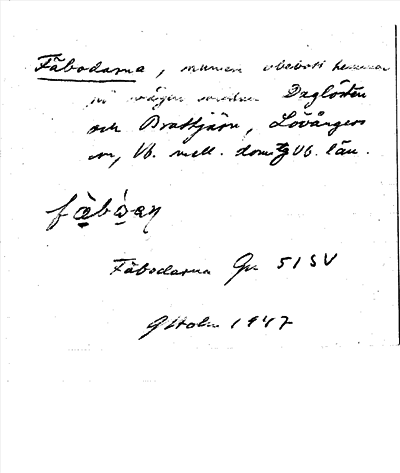 Fäbodarna, numera obebott hemman
på vägen mellan Daglösten
och Brattjärn, Lövångers
sn, Vb. mell. doms. Vb. län.
fä̀bòdan
Fäbodarna Gr. 51 SV
G Holm 1947